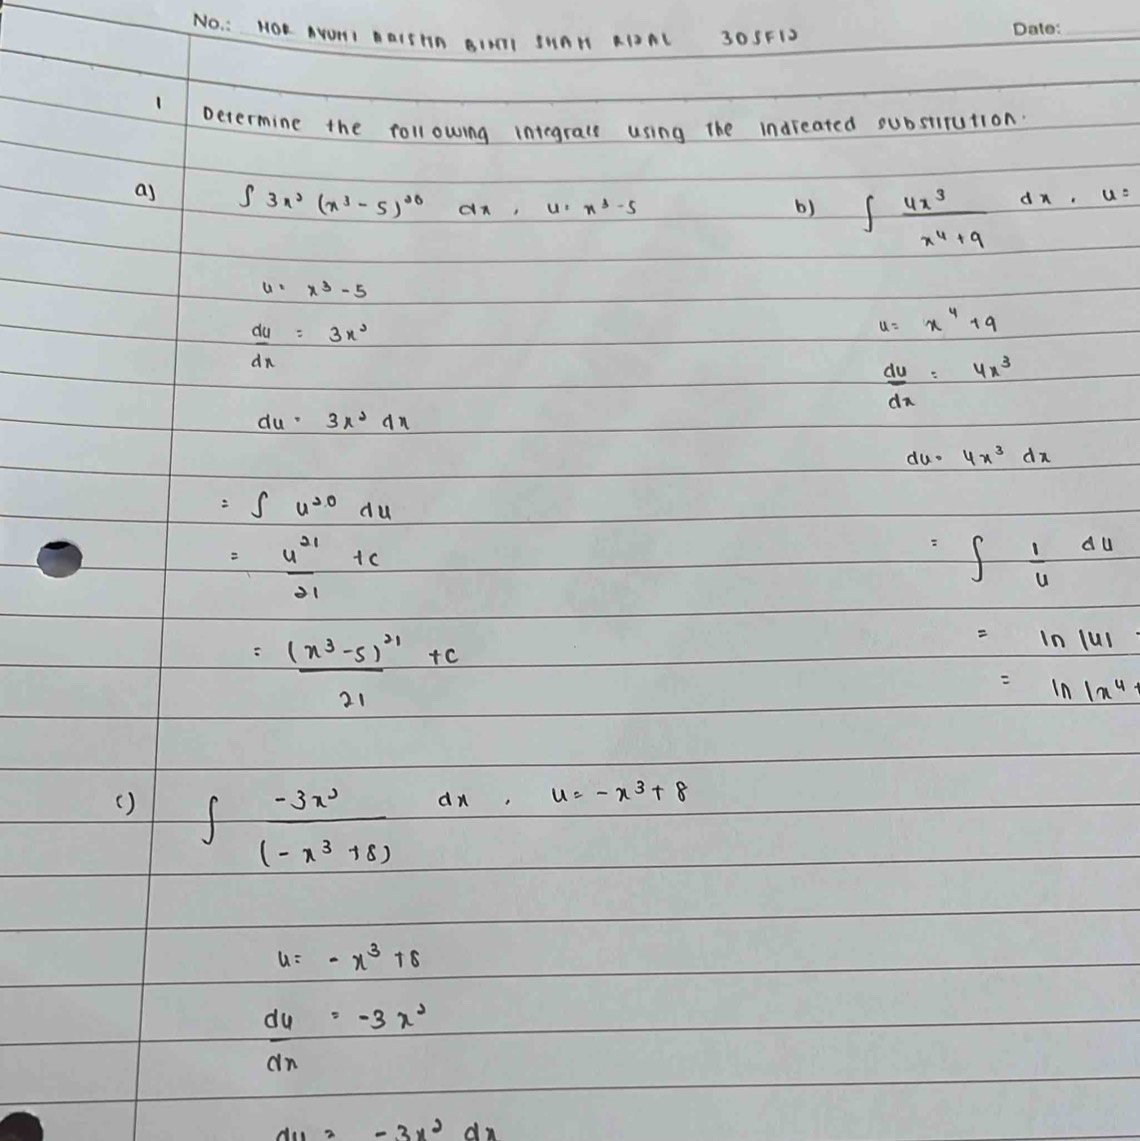 No.: NOR AYUNI BAISHA BINTI SHAH RIZAL 30SF12 Date:
1 Determine the following integrals using the indicated substitution.
a) ∫ 3x² (x³ - 5)²⁰ dx , u = x³ - 5
b) ∫ 4x³ / x⁴ + 9 dx , u =
u = x³ - 5
du/dx = 3x²
du = 3x² dx
= ∫ u²⁰ du
= u²¹/21 + c
= (x³ - 5)²¹/21 + c
u = x⁴ + 9
du/dx = 4x³
du = 4x³ dx
= ∫ 1/u du
= ln |u|
= ln |x⁴ +
c) ∫ -3x² / (-x³ + 8) dx , u = -x³ + 8
u = -x³ + 8
du/dx = -3x²
du = -3x² dx